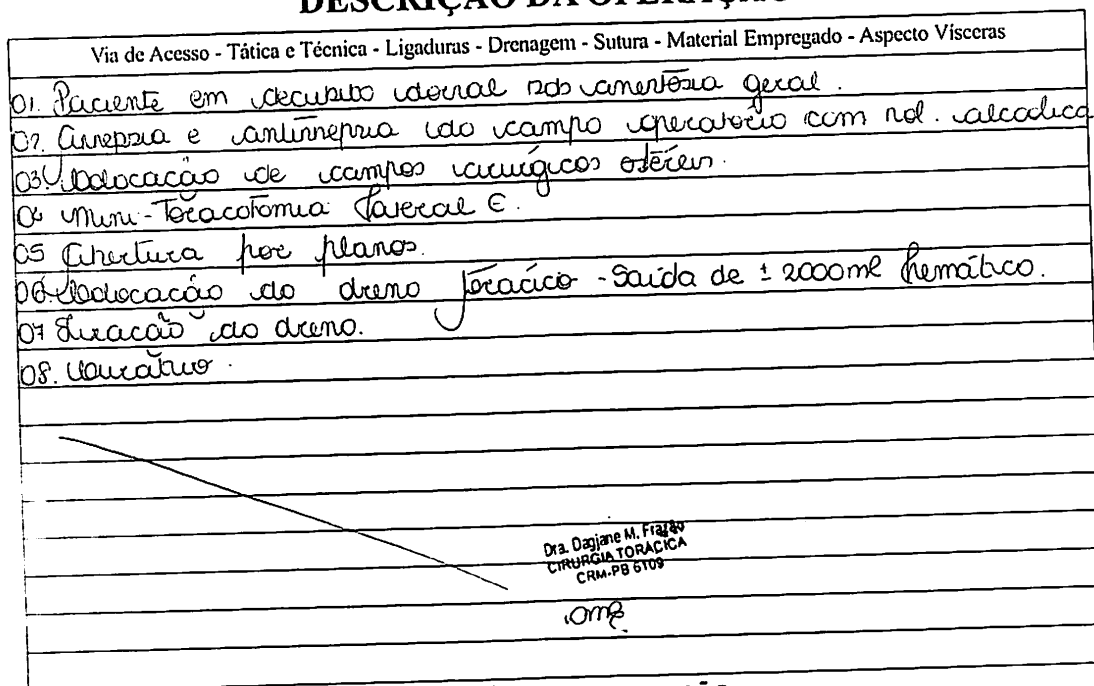 DESCRIÇÃO DA OPERAÇÃO
Via de Acesso - Tática e Técnica - Ligaduras - Drenagem - Sutura - Material Empregado - Aspecto Vísceras
01. Paciente em decúbito dorsal sob anestesia geral.
02. Assepsia e antissepsia do campo operatório com sol. alcoólica
03. Colocação de campos cirúrgicos estéreis.
04 Mini-Toracotomia lateral E.
05 Abertura por planos.
06. Colocação do dreno torácico - Saída de ± 2000ml hemático.
07 Fixação do dreno.
08. Curativo.
Dra. Dagjane M. Frazão
CIRURGIA TORÁCICA
CRM-PB 6109